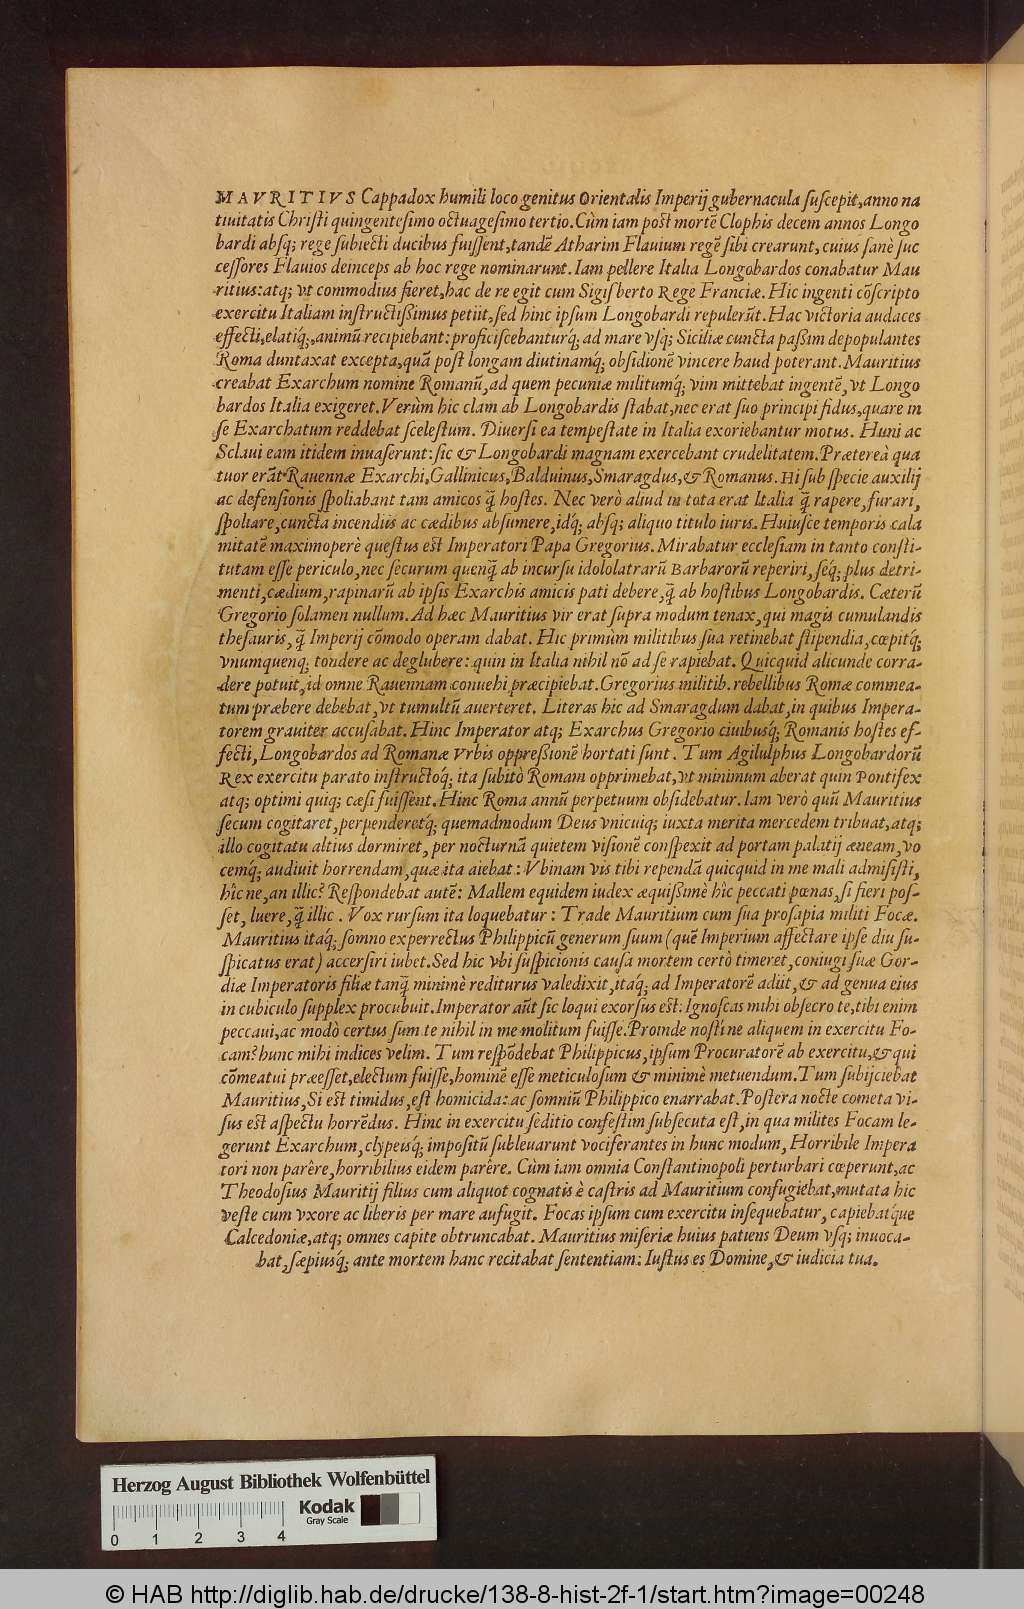 MAVRITIVS Cappadox humili loco genitus Orientalis Imperij gubernacula ſuſcepit, anno na
tiuitatis Chriſti quingenteſimo octuageſimo tertio. Cùm iam poſt mortē Clophis decem annos Longo
bardi abſq; rege ſubiecti ducibus fuiſſent, tandē Atharim Flauium regē ſibi crearunt, cuius ſanè ſuc
ceſſores Flauios deinceps ab hoc rege nominarunt. Iam pellere Italia Longobardos conabatur Mau
ritius: atq; vt commodius fieret, hac de re egit cum Sigiſberto Rege Franciæ. Hic ingenti cōſcripto
exercitu Italiam inſtructiſsimus petiit, ſed hinc ipſum Longobardi repulerūt. Hac victoria audaces
effecti, elatiq́;, animū recipiebant: proficiſcebanturq́; ad mare vſq; Siciliæ cuncta paſsim depopulantes
Roma duntaxat excepta, quā poſt longam diutinamq́; obſidionē vincere haud poterant. Mauritius
creabat Exarchum nomine Romanū, ad quem pecuniæ militumq́; vim mittebat ingentē, vt Longo
bardos Italia exigeret. Verùm hic clam ab Longobardis ſtabat, nec erat ſuo principi fidus, quare in
ſe Exarchatum reddebat ſceleſtum. Diuerſi ea tempeſtate in Italia exoriebantur motus. Huni ac
Sclaui eam itidem inuaſerunt: ſic & Longobardi magnam exercebant crudelitatem. Prætereà qua
tuor erāt Rauennæ Exarchi, Gallinicus, Balduinus, Smaragdus, & Romanus. Hi ſub ſpecie auxilij
ac defenſionis ſpoliabant tam amicos q̄ hoſtes. Nec verò aliud in tota erat Italia q̄ rapere, furari,
ſpoliare, cuncta incendiis ac cædibus abſumere, idq́; abſq; aliquo titulo iuris. Huiuſce temporis cala
mitatē maximoperè queſtus eſt Imperatori Papa Gregorius. Mirabatur eccleſiam in tanto conſti-
tutam eſſe periculo, nec ſecurum quenq̄ ab incurſu idololatrarū Barbarorū reperiri, ſéq́; plus detri-
menti, cædium, rapinarū ab ipſis Exarchis amicis pati debere, q̄ ab hoſtibus Longobardis. Cæterū
Gregorio ſolamen nullum. Ad hæc Mauritius vir erat ſupra modum tenax, qui magis cumulandis
theſauris, q̄ Imperij cōmodo operam dabat. Hic primùm militibus ſua retinebat ſtipendia, cœpitq́;
vnumquenq; tondere ac deglubere: quin in Italia nihil nō ad ſe rapiebat. Quicquid alicunde corra-
dere potuit, id omne Rauennam conuehi præcipiebat. Gregorius militib. rebellibus Romæ commea-
tum præbere debebat, vt tumultū auerteret. Literas hic ad Smaragdum dabat, in quibus Impera-
torem grauiter accuſabat. Hinc Imperator atq; Exarchus Gregorio ciuibuſq́; Romanis hoſtes ef-
fecti, Longobardos ad Romanæ Vrbis oppreſsionē hortati ſunt. Tum Agilulphus Longobardorū
Rex exercitu parato inſtructóq́; ita ſubitò Romam opprimebat, vt minimum aberat quin Pontifex
atq; optimi quiq; cæſi fuiſſent. Hinc Roma annū perpetuum obſidebatur. Iam verò quū Mauritius
ſecum cogitaret, perpenderetq́; quemadmodum Deus vnicuiq; iuxta merita mercedem tribuat, atq;
illo cogitatu altius dormiret, per nocturnā quietem viſionē conſpexit ad portam palatij æneam, vo
cemq́; audiuit horrendam, quæ ita aiebat: Vbinam vis tibi rependā quicquid in me mali admiſiſti,
hîc ne, an illic? Reſpondebat autē: Mallem equidem iudex æquiſsimè hîc peccati pœnas, ſi fieri poſ-
ſet, luere, q̄ illic. Vox rurſum ita loquebatur: Trade Mauritium cum ſua proſapia militi Focæ.
Mauritius itaq́; ſomno experrectus Philippicū generum ſuum (quē Imperium affectare ipſe diu ſu-
ſpicatus erat) accerſiri iubet. Sed hic vbi ſuſpicionis cauſa mortem certò timeret, coniugi ſuæ Gor-
diæ Imperatoris filiæ tanq̄ minimè rediturus valedixit, itaq́; ad Imperatorē adiit, & ad genua eius
in cubiculo ſupplex procubuit. Imperator aūt ſic loqui exorſus eſt: Ignoſcas mihi obſecro te, tibi enim
peccaui, ac modò certus ſum te nihil in me molitum fuiſſe. Proinde noſti ne aliquem in exercitu Fo-
cam? hunc mihi indices velim. Tum reſpōdebat Philippicus, ipſum Procuratorē ab exercitu, & qui
cōmeatui præeſſet, electum fuiſſe, hominē eſſe meticuloſum & minimè metuendum. Tum ſubijciebat
Mauritius, Si eſt timidus, eſt homicida: ac ſomniū Philippico enarrabat. Poſtera nocte cometa vi-
ſus eſt aſpectu horrēdus. Hinc in exercitu ſeditio confeſtim ſubſecuta eſt, in qua milites Focam le-
gerunt Exarchum, clypeiſq́; impoſitū ſubleuarunt vociferantes in hunc modum, Horribile Impera
tori non parêre, horribilius eidem parêre. Cùm iam omnia Conſtantinopoli perturbari cœperunt, ac
Theodoſius Mauritij filius cum aliquot cognatis è caſtris ad Mauritium confugiebat, mutata hic
veſte cum vxore ac liberis per mare aufugit. Focas ipſum cum exercitu inſequebatur, capiebatq́ue
Calcedoniæ, atq; omnes capite obtruncabat. Mauritius miſeriæ huius patiens Deum vſq; inuoca-
bat, ſæpiuſq́; ante mortem hanc recitabat ſententiam: Iuſtus es Domine, & iudicia tua.
Herzog August Bibliothek Wolfenbüttel
Kodak
Gray Scale
0 1 2 3 4
© HAB http://diglib.hab.de/drucke/138-8-hist-2f-1/start.htm?image=00248